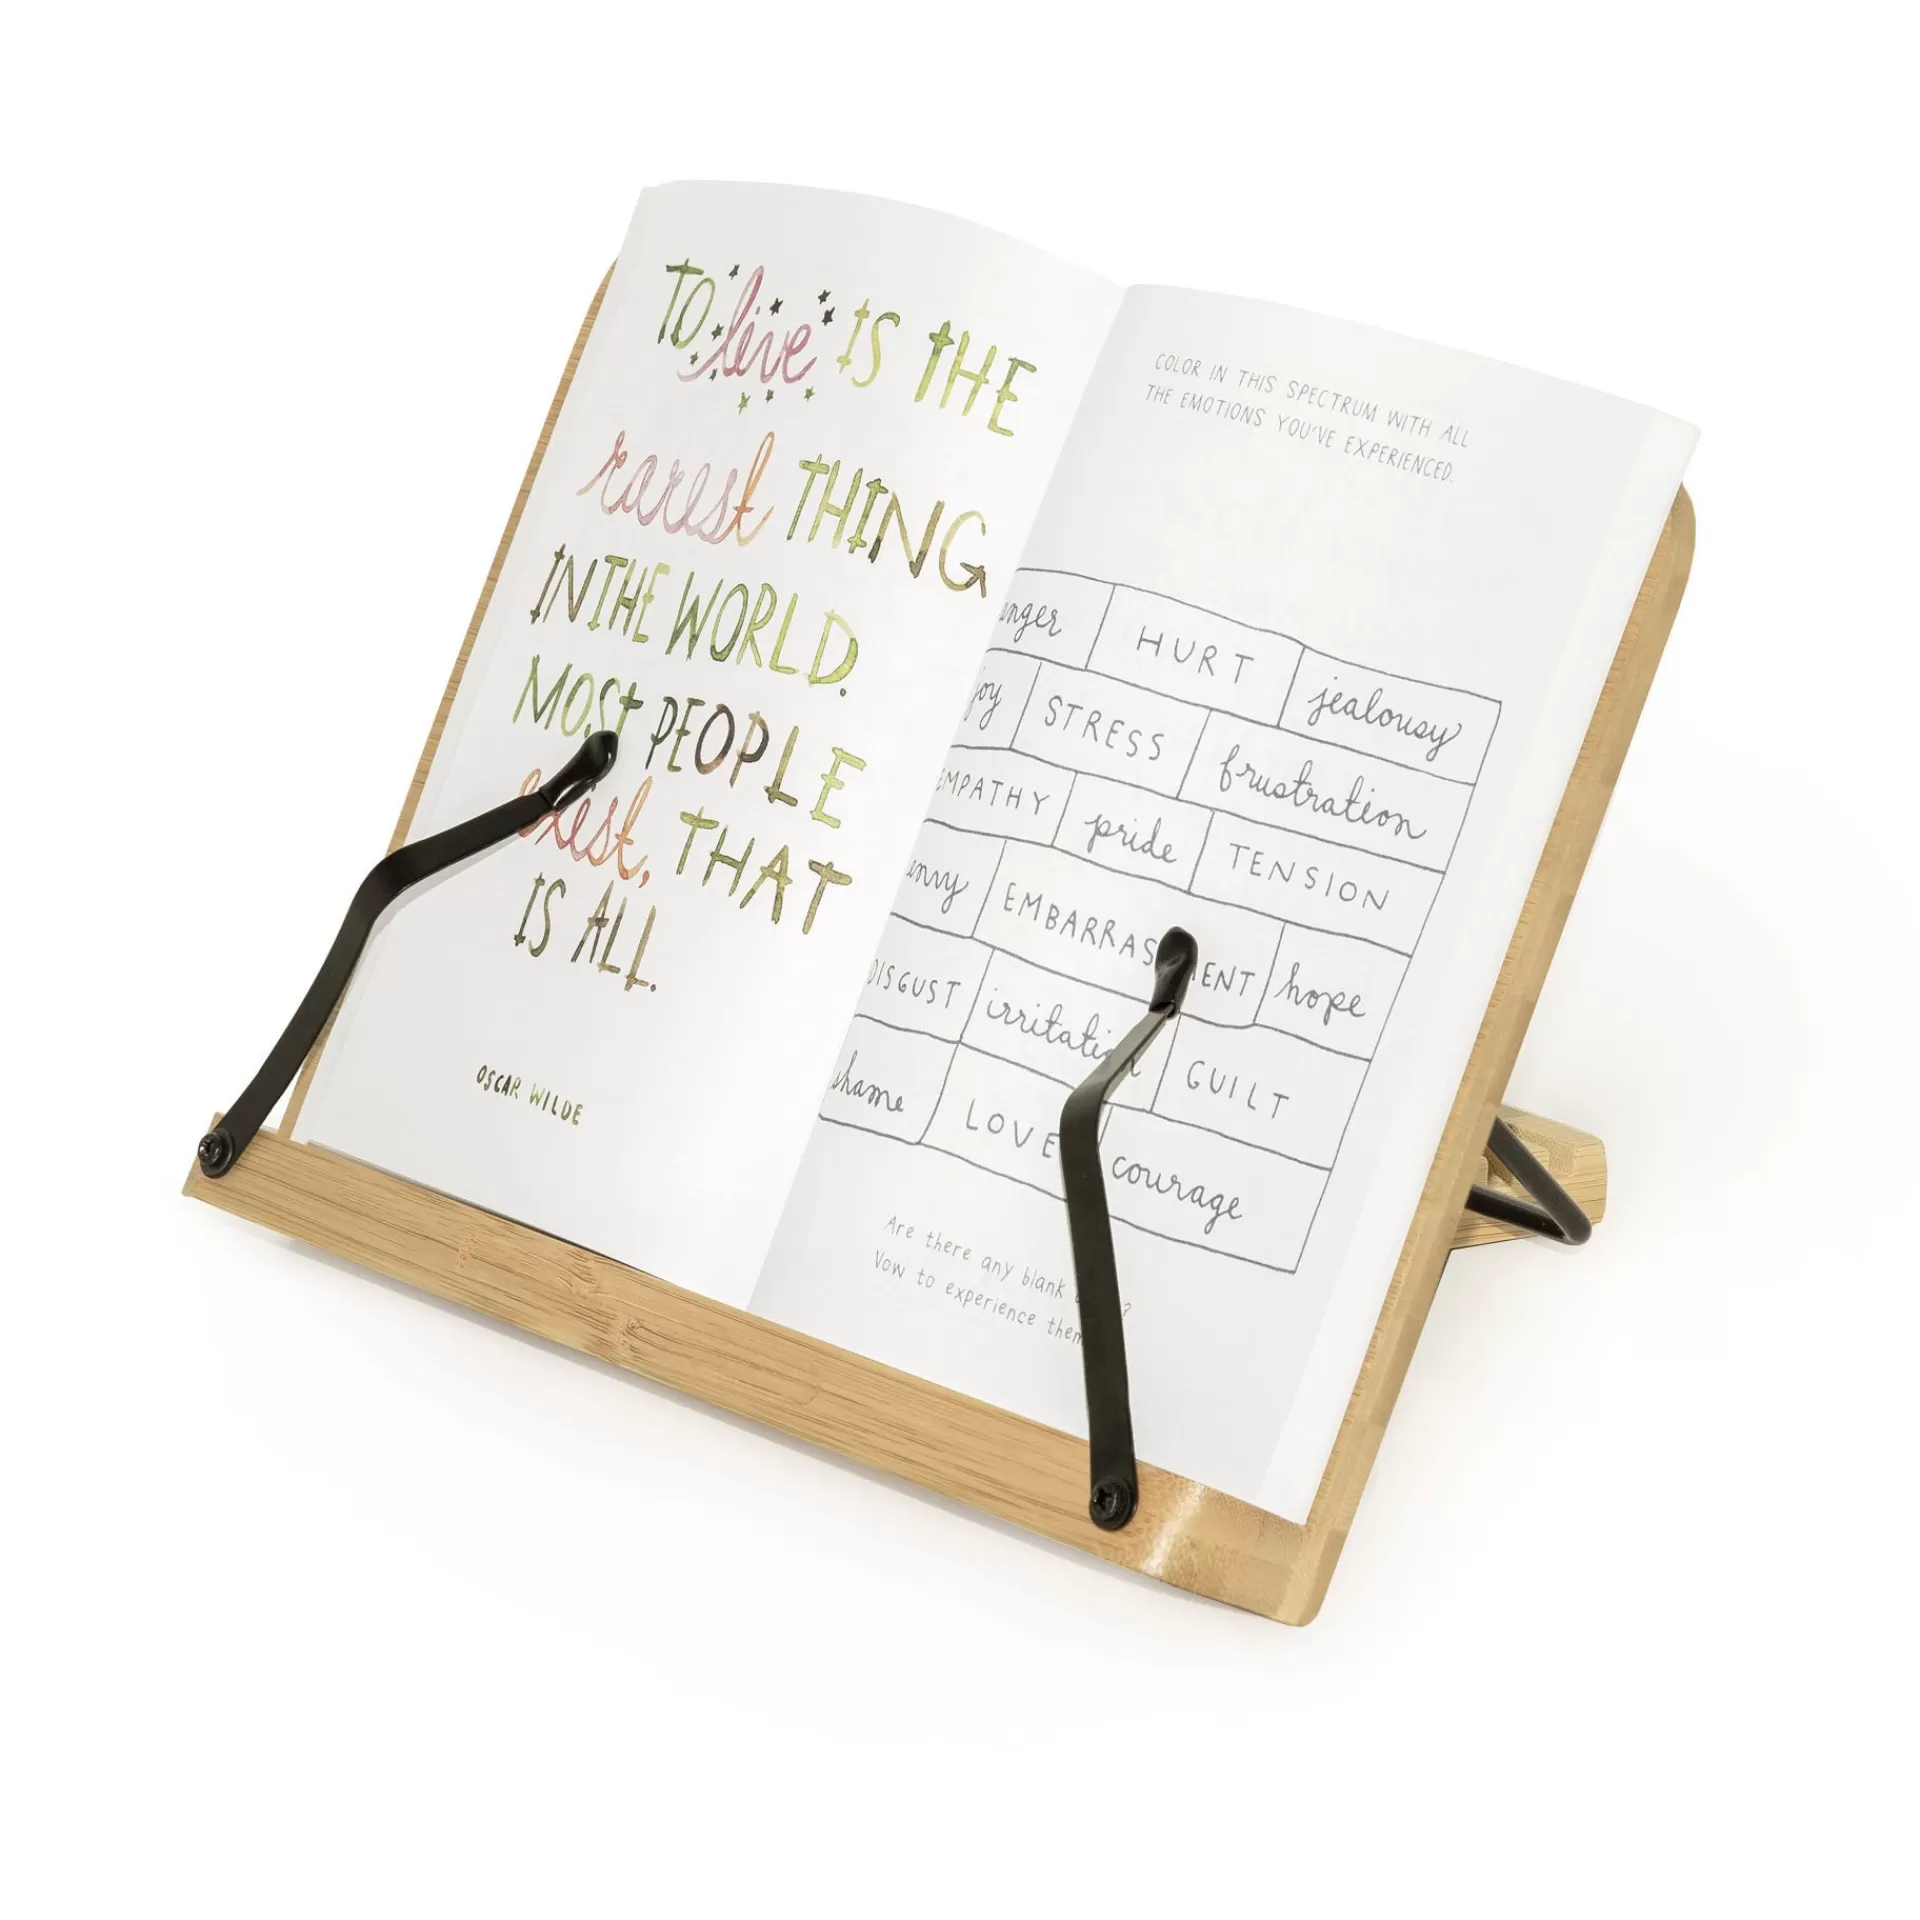 TO live IS THE
rarest THING
IN THE WORLD.
MOST PEOPLE
exist, THAT
IS ALL.
OSCAR WILDE
COLOR IN THIS SPECTRUM WITH ALL
THE EMOTIONS YOU'VE EXPERIENCED.
anger HURT jealousy
joy STRESS frustration
EMPATHY pride TENSION
envy EMBARRAS ENT hope
DISGUST irritation GUILT
shame LOVE courage
Are there any blank
Vow to experience them